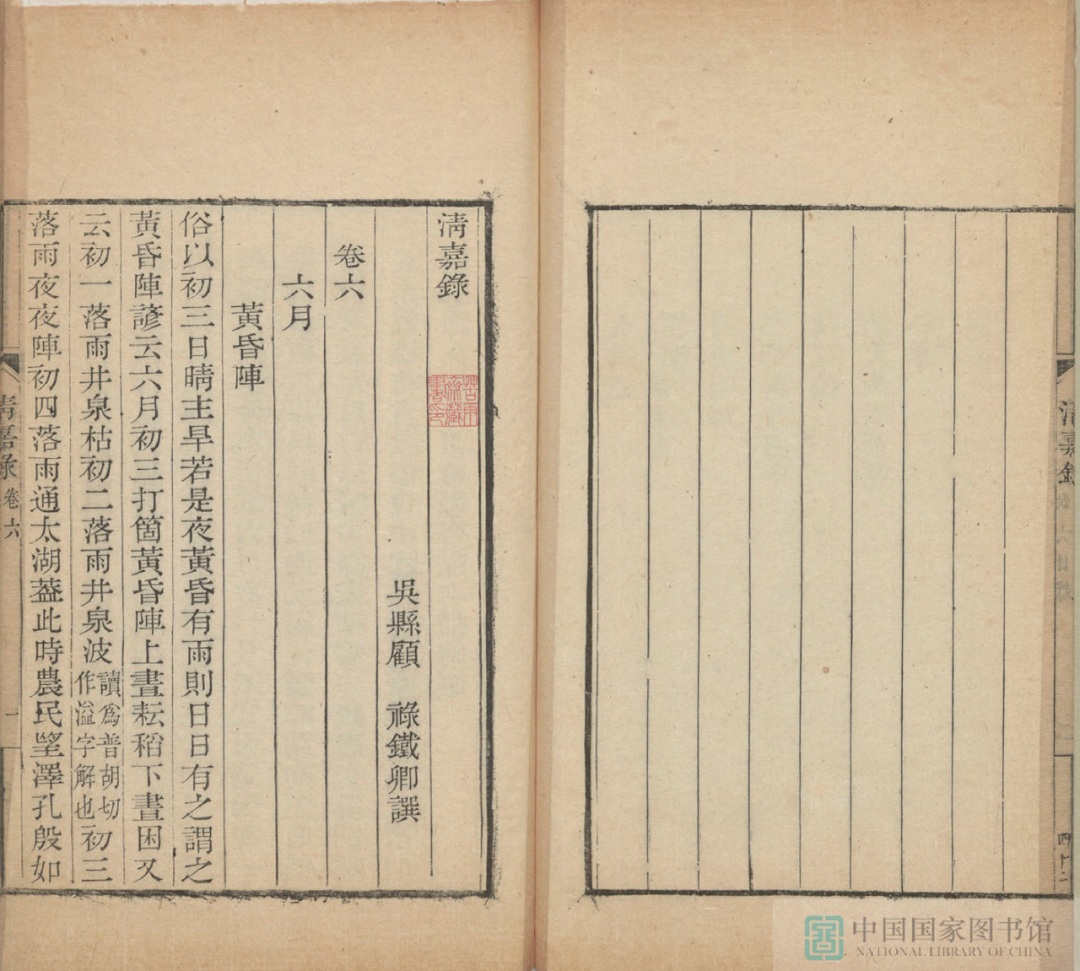 清嘉錄
吳縣顧 祿鐵卿譔
卷六
六月
黃昏陣
俗以初三日晴主旱若是夜黃昏有雨則日日有之謂之
黃昏陣諺云六月初三打箇黃昏陣上晝耘稻下晝困又
云初一落雨井泉枯初二落雨井泉波讀爲普胡切作溢字解也初三
落雨夜夜陣初四落雨通太湖葢此時農民望澤孔殷如
清嘉錄 卷六 一
清嘉錄
中国国家图书馆
NATIONAL LIBRARY OF CHINA